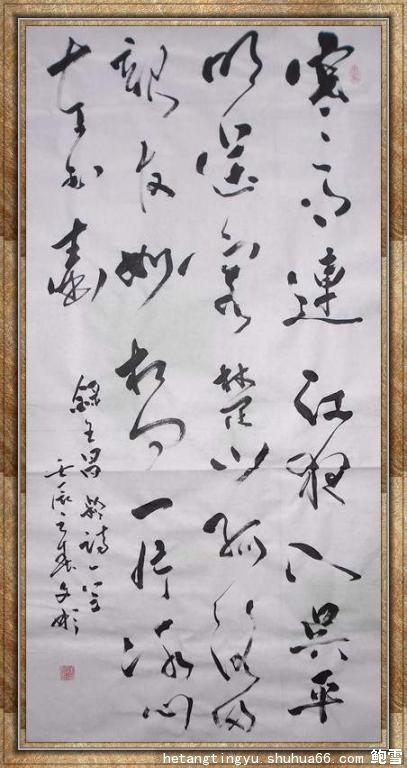 寒雨連江夜入吳平
明送客楚山孤洛陽
親友如相問一片冰心
在玉壺
錄王昌齡詩一首
hetangtingyu.shuhua66.com 鲍雪